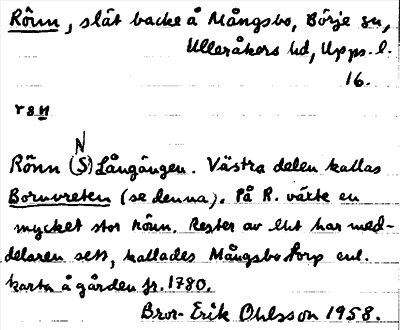 Rönn, slät backe å Mångsbo, Börje sn,
Ulleråkers hd, Upps. l.
16.
rön
N
Rönn (S) Långängen. Västra delen kallas
Bornvreten (se denna). På R. växte en
mycket stor rönn. Rester av ett har med-
delaren sett, kallades Mångsbo torp enl.
karta å gården fr. 1780.
Bror-Erik Ohlsson 1958.